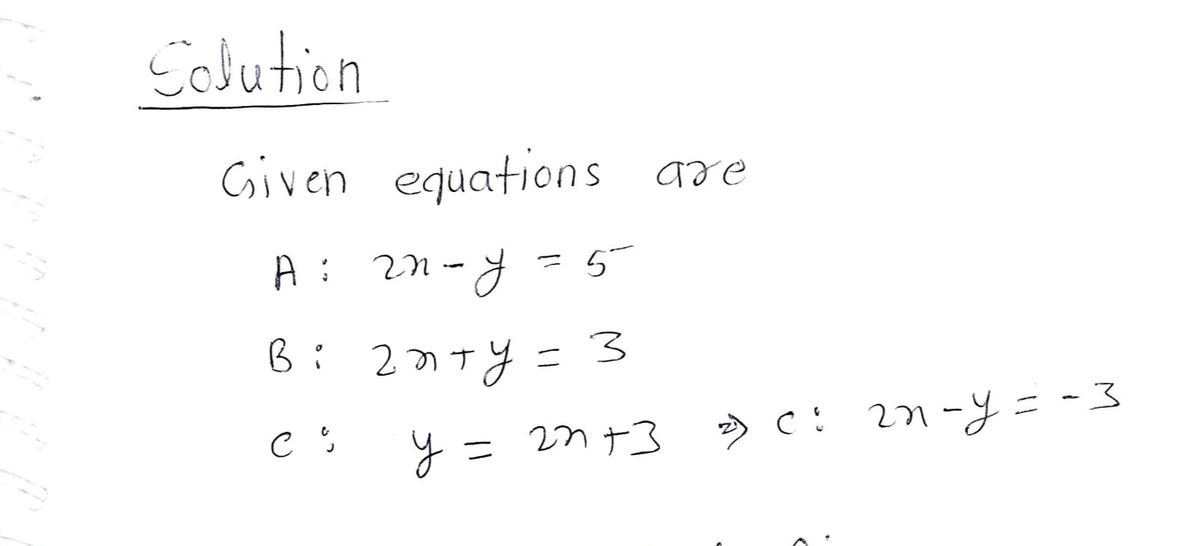 Solution
Given equations are
A: 2x - y = 5
B: 2x + y = 3
C: y = 2x + 3 ⇒ C: 2x - y = -3